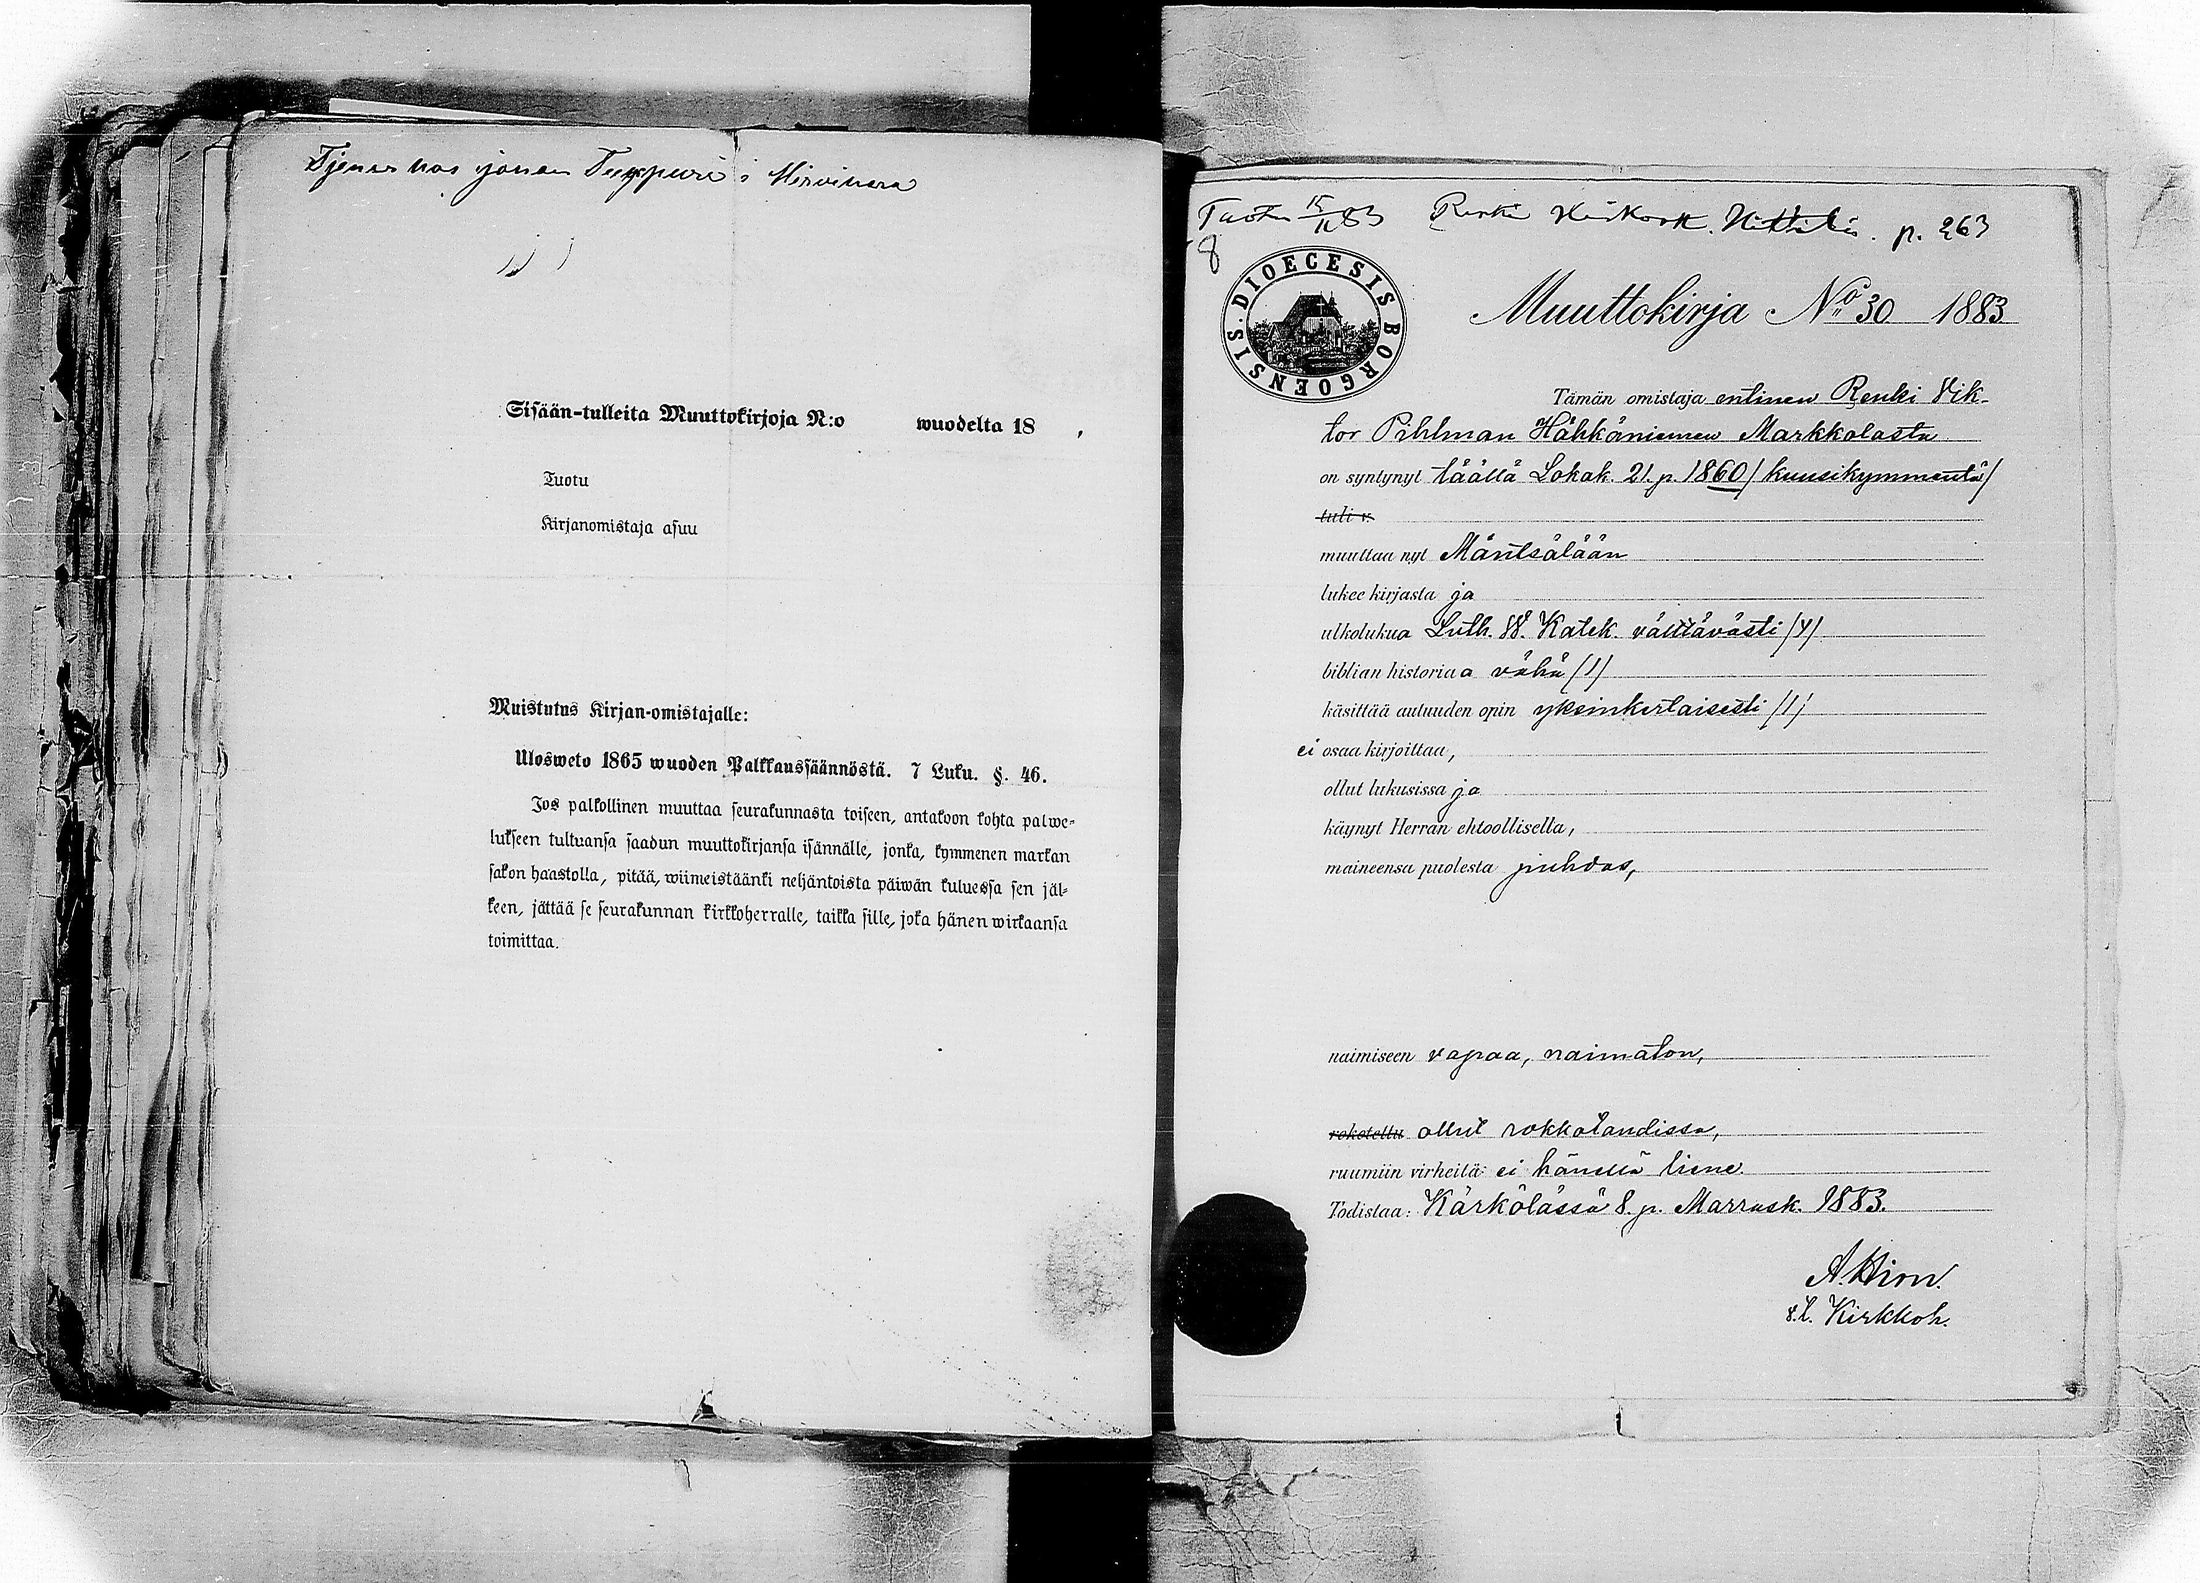 Tjenar hos Johan Tuppuri i Hirvihara
Sisään-tulleita Muuttokirjoja N:o wuodelta 18 ,
Tuotu
Kirjanomistaja asuu
Muistutus Kirjan-omistajalle:
Ulosweto 1865 wuoden Palkkaussäännöstä. 7 Luku. §. 46.
Jos palkollinen muuttaa seurakunnasta toiseen, antakoon kohta palwe-
lukseen tultuansa saadun muuttokirjansa isännälle, jonka, kymmenen markan
sakon haastolla, pitää, wiimeistäänki neljäntoista päiwän kuluessa sen jäl-
keen, jättää se seurakunnan kirkkoherralle, taikka sille, joka hänen wirkaansa
toimittaa.
Tuotu 15/11 83 Renki p. 263
8
DIOECESIS BORGOENSIS.
Muuttokirja No 30 1883
Tämän omistaja entinen Renki Vik-
tor Pihlman Hähkäniemen Markkolasta
on syntynyt täällä Lokak. 21. p. 1860 / kuusikymmentä /
tuli v.
muuttaa nyt Mäntsälään
lukee kirjasta ja
ulkolukua Luth. W. Katek. välttävästi /4/
biblian historiaa vähä /1/
käsittää autuuden opin yksinkertaisesti /1/
ei osaa kirjoittaa,
ollut lukusissa ja
käynyt Herran ehtoollisella,
maineensa puolesta puhdas,
naimiseen vapaa, naimaton,
rokotettu ollut rokkotaudissa,
ruumiin virheitä: ei hänellä liene.
Todistaa: Kärkölässä 8. p. Marrask. 1883.
A. Hirn.
v.t. Kirkkoh.